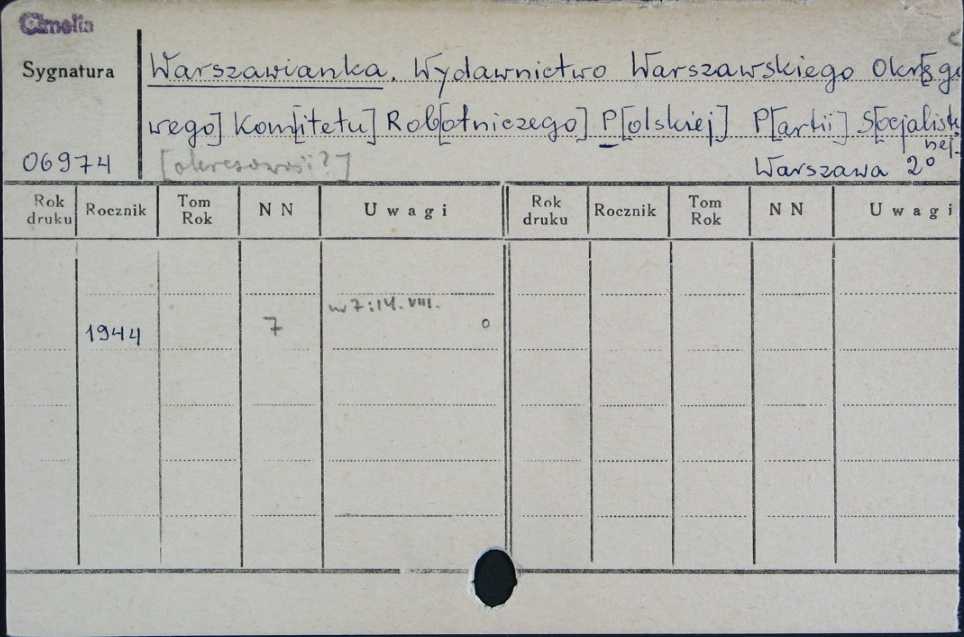 Cimelia
Sygnatura
Warszawianka. Wydawnictwo Warszawskiego Okręgo
wego] Kom[itetu] Rob[otniczego] P[olskiej] P[artii] S[ocjalistycz
nej.
06974
[okresowość?]
Warszawa 2°
Rok druku Rocznik Tom Rok N N Uwagi Rok druku Rocznik Tom Rok N N Uwagi
nr 7: 14. VIII.
1944 7 o